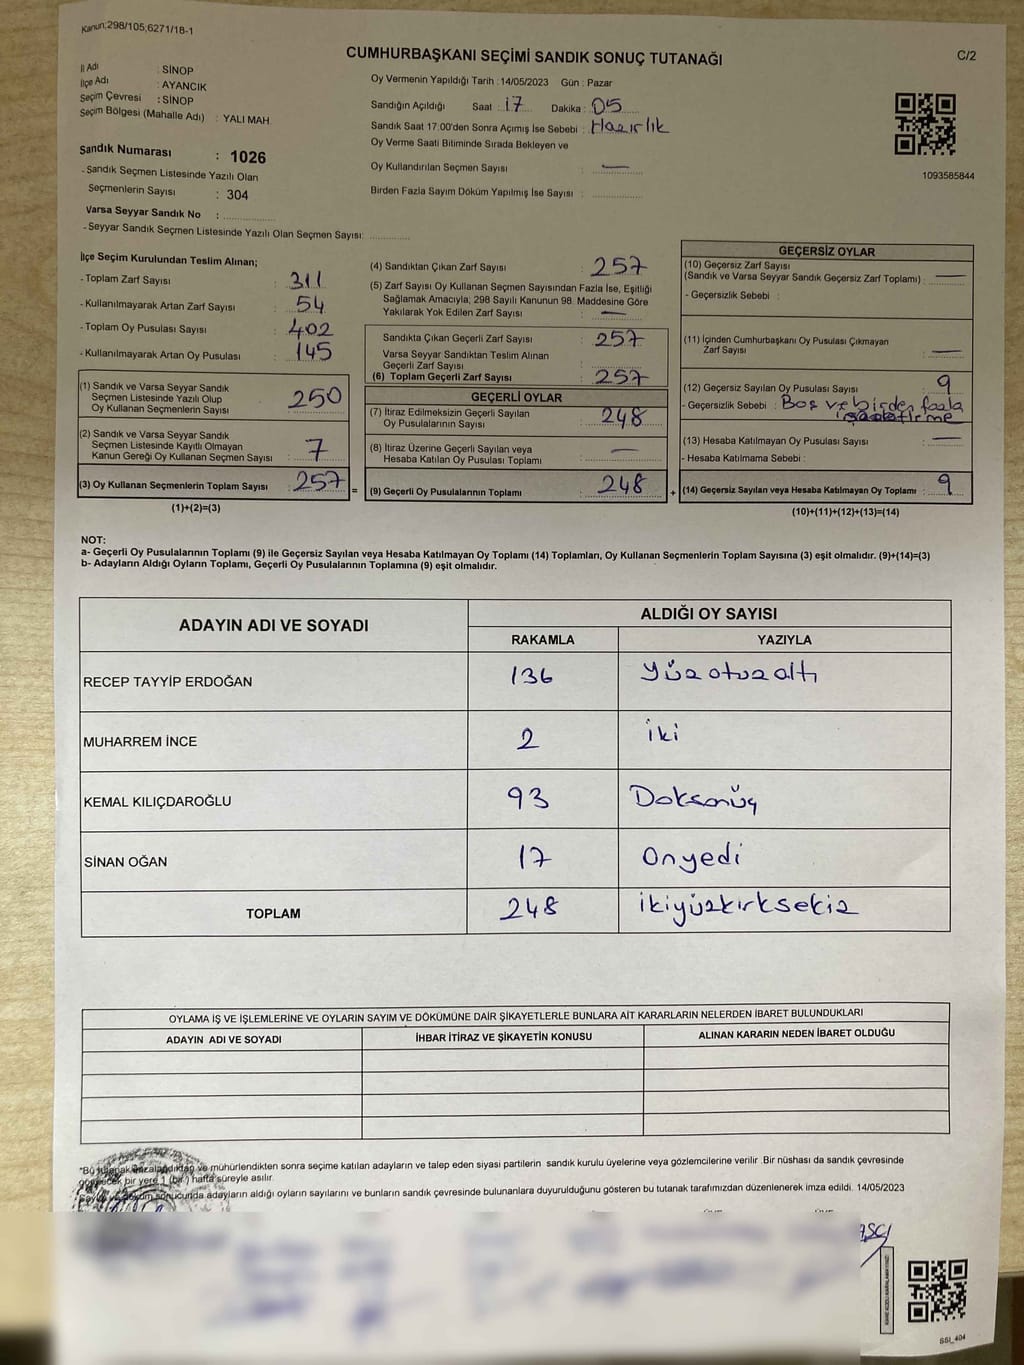 Kanun;298/105,6271/18-1
CUMHURBAŞKANI SEÇİMİ SANDIK SONUÇ TUTANAĞI
C/2
İl Adı : SİNOP
İlçe Adı : AYANCIK
Seçim Çevresi : SİNOP
Seçim Bölgesi (Mahalle Adı) : YALI MAH.
Sandık Numarası : 1026
- Sandık Seçmen Listesinde Yazılı Olan
Seçmenlerin Sayısı : 304
Varsa Seyyar Sandık No :
- Seyyar Sandık Seçmen Listesinde Yazılı Olan Seçmen Sayısı:
Oy Vermenin Yapıldığı Tarih : 14/05/2023 Gün : Pazar
Sandığın Açıldığı Saat : 17 Dakika : 05
Sandık Saat 17:00'den Sonra Açımış İse Sebebi : Hazırlık
Oy Verme Saati Bitiminde Sırada Bekleyen ve
Oy Kullandırılan Seçmen Sayısı : —
Birden Fazla Sayım Döküm Yapılmış İse Sayısı :
1093585844
İlçe Seçim Kurulundan Teslim Alınan;
- Toplam Zarf Sayısı : 311
- Kullanılmayarak Artan Zarf Sayısı : 54
- Toplam Oy Pusulası Sayısı : 402
- Kullanılmayarak Artan Oy Pusulası : 145
(1) Sandık ve Varsa Seyyar Sandık
Seçmen Listesinde Yazılı Olup
Oy Kullanan Seçmenlerin Sayısı : 250
(2) Sandık ve Varsa Seyyar Sandık
Seçmen Listesinde Kayıtlı Olmayan
Kanun Gereği Oy Kullanan Seçmen Sayısı : 7
(3) Oy Kullanan Seçmenlerin Toplam Sayısı : 257
(1)+(2)=(3)
=
(4) Sandıktan Çıkan Zarf Sayısı : 257
(5) Zarf Sayısı Oy Kullanan Seçmen Sayısından Fazla İse, Eşitliği
Sağlamak Amacıyla; 298 Sayılı Kanunun 98. Maddesine Göre
Yakılarak Yok Edilen Zarf Sayısı : —
Sandıkta Çıkan Geçerli Zarf Sayısı : 257
Varsa Seyyar Sandıktan Teslim Alınan
Geçerli Zarf Sayısı :
(6) Toplam Geçerli Zarf Sayısı : 257
GEÇERLİ OYLAR
(7) İtiraz Edilmeksizin Geçerli Sayılan
Oy Pusulalarının Sayısı : 248
(8) İtiraz Üzerine Geçerli Sayılan veya
Hesaba Katılan Oy Pusulası Toplamı : —
(9) Geçerli Oy Pusulalarının Toplamı : 248
+
GEÇERSİZ OYLAR
(10) Geçersiz Zarf Sayısı
(Sandık ve Varsa Seyyar Sandık Geçersiz Zarf Toplamı) : —
- Geçersizlik Sebebi :
(11) İçinden Cumhurbaşkanı Oy Pusulası Çıkmayan
Zarf Sayısı : —
(12) Geçersiz Sayılan Oy Pusulası Sayısı : 9
- Geçersizlik Sebebi : Boş ve birden fazla
işaretleme
(13) Hesaba Katılmayan Oy Pusulası Sayısı : —
- Hesaba Katılmama Sebebi :
(14) Geçersiz Sayılan veya Hesaba Katılmayan Oy Toplamı : 9
(10)+(11)+(12)+(13)=(14)
NOT:
a- Geçerli Oy Pusulalarının Toplamı (9) ile Geçersiz Sayılan veya Hesaba Katılmayan Oy Toplamı (14) Toplamları, Oy Kullanan Seçmenlerin Toplam Sayısına (3) eşit olmalıdır. (9)+(14)=(3)
b- Adayların Aldığı Oyların Toplamı, Geçerli Oy Pusulalarının Toplamına (9) eşit olmalıdır.
ADAYIN ADI VE SOYADI
ALDIĞI OY SAYISI
RAKAMLA YAZIYLA
RECEP TAYYİP ERDOĞAN 136 Yüzotuzaltı
MUHARREM İNCE 2 iki
KEMAL KILIÇDAROĞLU 93 Doksanüç
SİNAN OĞAN 17 Onyedi
TOPLAM 248 ikiyüzkırksekiz
OYLAMA İŞ VE İŞLEMLERİNE VE OYLARIN SAYIM VE DÖKÜMÜNE DAİR ŞİKAYETLERLE BUNLARA AİT KARARLARIN NELERDEN İBARET BULUNDUKLARI
ADAYIN ADI VE SOYADI İHBAR İTİRAZ VE ŞİKAYETİN KONUSU ALINAN KARARIN NEDEN İBARET OLDUĞU
*Bu tutanak imzalandıktan ve mühürlendikten sonra seçime katılan adayların ve talep eden siyasi partilerin sandık kurulu üyelerine veya gözlemcilerine verilir. Bir nüshası da sandık çevresinde
görülecek bir yere 1 (bir) hafta süreyle asılır.
Sayım ve döküm sonucunda adayların aldığı oyların sayılarını ve bunların sandık çevresinde bulunanlara duyurulduğunu gösteren bu tutanak tarafımızdan düzenlenerek imza edildi. 14/05/2023
SSI_404